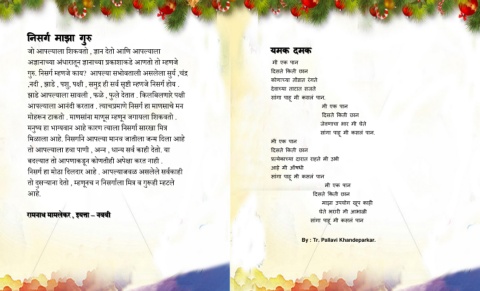 निसर्ग माझा गुरु
जो आपल्याला शिकवतो , ज्ञान देतो आणि आपल्याला
अज्ञानाच्या अंधारातून ज्ञानाच्या प्रकाशाकडे आणतो तो म्हणजे
गुरु. निसर्ग म्हणजे काय? आपल्या सभोवताली असलेला सुर्य ,चंद्र
,नदी , झाडे , पशु, पक्षी , समुद्र ही सर्व सृष्टी म्हणजे निसर्ग होय .
झाडे आपल्याला सावली , फळे , फुले देतात . किलबिलणारे पक्षी
आपल्याला आनंदी करतात . त्याचप्रमाणे निसर्ग हा माणसाचे मन
मोहरून टाकतो . माणसांना माणूस म्हणून जगायला शिकवतो .
मनुष्य हा भाग्यवान आहे कारण त्याला निसर्गा सारखा मित्र
मिळाला आहे. निसर्गाने आपल्या मानव जातीला जन्म दिला आहे
तो आपल्याला हवा पाणी , अन्न , धान्य सर्व काही देतो. या
बदल्यात तो आपणाकडून कोणतीही अपेक्षा करत नाही .
निसर्ग हा मोठा दिलदार आहे . आपल्याजवळ असलेले सर्वकाही
तो दुसऱ्याना देतो , म्हणूनच न निसर्गाला मित्र व गुरुही म्हटले
आहे.
रामनाथ मामलेकर , इयत्ता – नववी
यमक दमक
मी एक पान
दिसते किती छान
कोणाच्या तोंडात रंगते
देवाच्या जेवणात सजते
सांगा पाहू मी कसलं पान.
मी एक पान
दिसते किती छान
जेवणाचा भार मी घेते
सांगा पाहू मी कसलं पान.
मी एक पान
दिसते किती छान
प्रत्येकाच्या दारात राहते मी उभी
आहे मी औषधी
सांगा पाहू मी कसलं पान
मी एक पान
दिसते किती छान
माझा उपयोग खूप काही
घेते भरारी मी आभाळी
सांगा पाहू मी कसलं पान
By : Tr. Pallavi Khandeparkar.